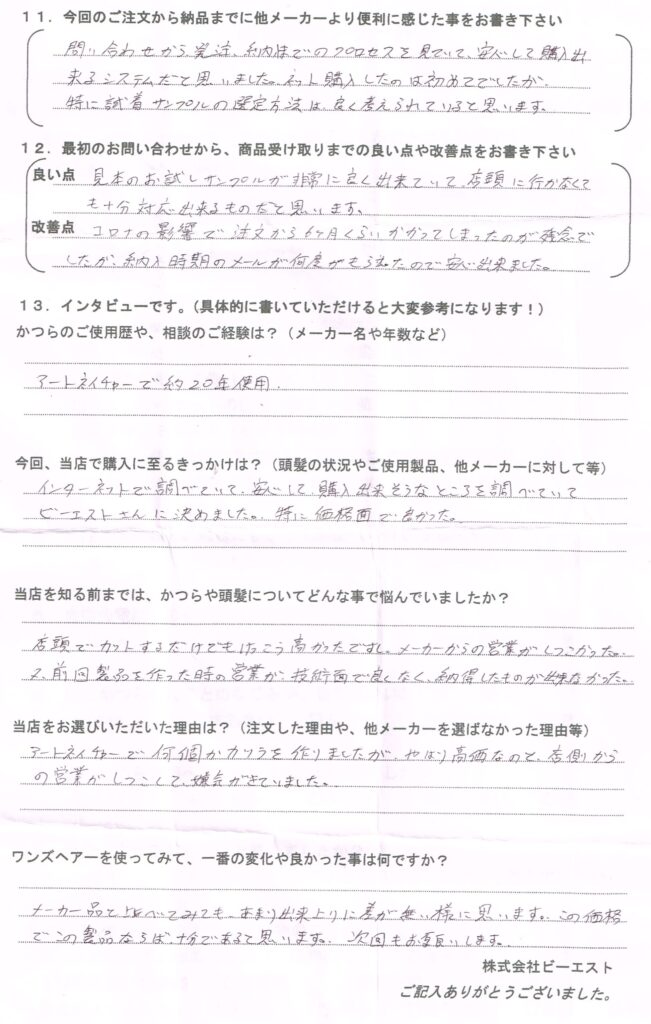 １１．今回のご注文から納品までに他メーカーより便利に感じた事をお書き下さい
問い合わせから発注、納品までのプロセスを見ていて、安心して購入出
来るシステムだと思いました。ネット購入したのは初めてでしたが、
特に試着サンプルの選定方法は、良く考えられていると思います。
１２．最初のお問い合わせから、商品受け取りまでの良い点や改善点をお書き下さい
良い点 見本のお試しサンプルが非常に良く出来ていて、店頭に行かなくて
も十分対応出来るものだと思います。
改善点 コロナの影響で注文から6ヶ月くらいかかってしまったのが残念で
したが、納入時期のメールが何度かもらえたので安心出来ました。
１３．インタビューです。（具体的に書いていただけると大変参考になります！）
かつらのご使用歴や、相談のご経験は？（メーカー名や年数など）
アートネイチャーで約20年使用.
今回、当店で購入に至るきっかけは？（頭髪の状況やご使用製品、他メーカーに対して等）
インターネットで調べていて、安心して購入出来そうなところを調べていて
ビーエストさんに決めました。特に価格面で良かった。
当店を知る前までは、かつらや頭髪についてどんな事で悩んでいましたか？
店頭でカットするだけでもけっこう高かったですし、メーカーからの営業がしつこかった。
又、前回製品を作った時の営業が、技術面で良くなく、納得したものが出来なかった。
当店をお選びいただいた理由は？（注文した理由や、他メーカーを選ばなかった理由等）
アートネイチャーで何個かカツラを作りましたが、やはり高価なのと、店側から
の営業がしつこくて、嫌気がさていました。
ワンズヘアーを使ってみて、一番の変化や良かった事は何ですか？
メーカー品と比べてみても、あまり出来上りに差が無い様に思います。この価格
でこの製品ならば十分であると思います。次回もお願いします。
株式会社ビーエスト
ご記入ありがとうございました。